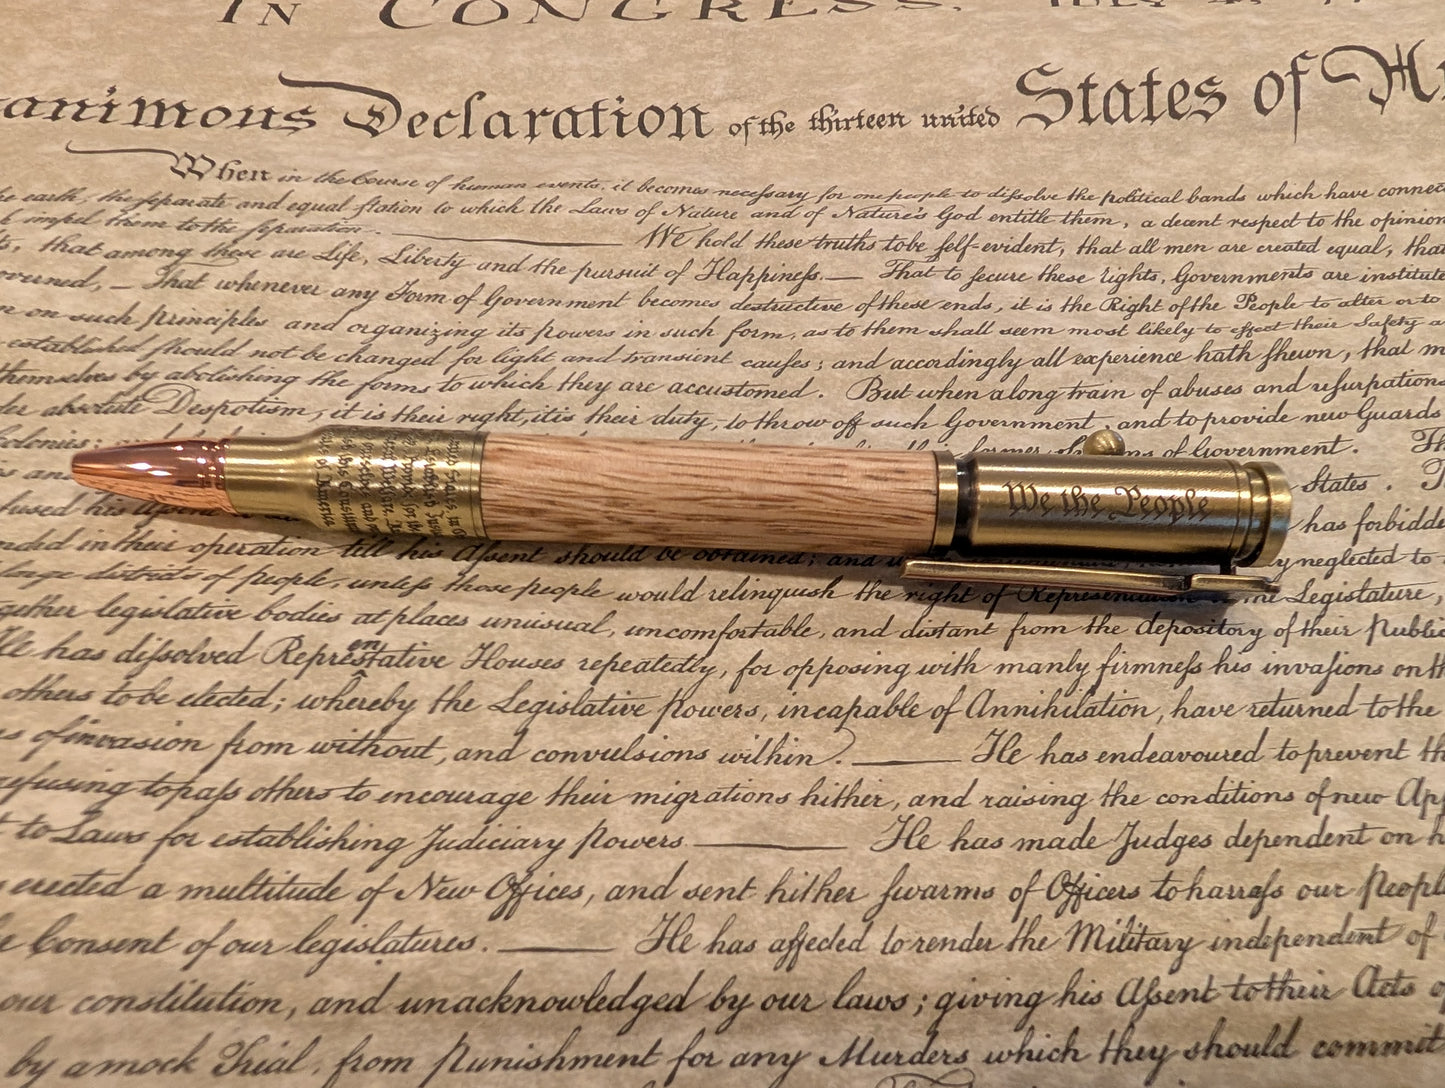 In Congress, July 4, 17
animous Declaration of the thirteen united States of
When in the Course of human events, it becomes necessary for one people to dissolve the political bands which have connec
he earth, the separate and equal station to which the Laws of Nature and of Nature's God entitle them, a decent respect to the opinion
impel them to the separation. We hold these truths to be self-evident, that all men are created equal, that
that among these are Life, Liberty and the pursuit of Happiness.— That to secure these rights, Governments are institute
verned, — That whenever any Form of Government becomes destructive of these ends, it is the Right of the People to alter or to
on such principles and organizing its powers in such form, as to them shall seem most likely to effect their Safety a
established should not be changed for light and transient causes; and accordingly all experience hath shewn, that m
themselves by abolishing the forms to which they are accustomed. But when a long train of abuses and usurpations
der absolute Despotism, it is their right, it is their duty, to throw off such Government, and to provide new Guards
Colonies; former of Government.
We the People
States.
fused his Assent has forbidde
nded in their operation till his Assent should be obtained; and neglected to
large districts of people, unless those people would relinquish the right of Representation Legislature,
gether legislative bodies at places unusual, uncomfortable, and distant from the depository of their Public
He has dissolved Representative Houses repeatedly, for opposing with manly firmness his invasions on th
others to be elected; whereby the Legislative powers, incapable of Annihilation, have returned to the
of invasion from without, and convulsions within. He has endeavoured to prevent th
refusing to pass others to encourage their migrations hither, and raising the conditions of new App
to Laws for establishing Judiciary powers. He has made Judges dependent on h
erected a multitude of New Offices, and sent hither swarms of Officers to harrass our People
e Consent of our legislatures. He has affected to render the Military independent of
our constitution, and unacknowledged by our laws; giving his Assent to their Acts o
by a mock Trial, from punishment for any Murders which they should commit